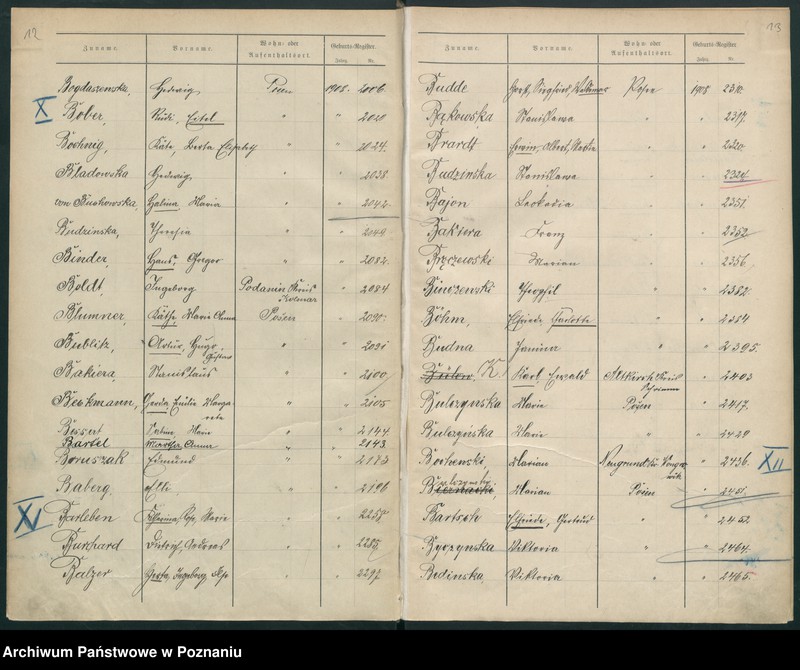 12
Zuname. Vorname. Wohn= oder Aufenthaltsort. Geburts-Register. Jahrg. Nr.
Bogdaszewska, Hedwig Posen 1908. 2006.
X
Bober, Rudi, " " 2010
Bochnig, Käte, Berta Elisabeth " " 2024.
Bladowska Hedwig, " " 2038
von Buchowska, Halina, Maria " " 2042
Budzinska, Theresia " " 2049
Binder, Hans, Gregor " " 2082.
Boldt, Ingeborg Podanin Kreis Kolmar " 2084
Blumner, Käthe, Marie Anna Posen " 2090.
Bublitz, Artur, Hugo, Gustav " " 2091
Bakiera, Stanislaus " " 2100
Beckmann, Gerda, Emilie Margarete " " 2105
Bessert " " 2144
Bartel Martha, Anna " " 2143.
Boruszak Edmund " " 2183
Baberg, " " 2196
XI
Barleben Marie " " 2258
Burkhard Dietrich, Andreas " " 2285
Balzer Greta, Ingeborg, " " 2297
13
Zuname. Vorname. Wohn= oder Aufenthaltsort. Geburts-Register. Jahrg. Nr.
Budde Horst, Siegfried, Waldemar Posen 1908 2310.
Bąkowska Stanislawa " " 2317.
Brardt Erwin, Albert, Martin " " 2320
Budzinska Stanislawa " " 2324.
Bajon Leokadia " " 2351.
Bakiera Franz " " 2352
Brzczewski Marian " " 2356
Binozewski Theophil " " 2382
Böhm, Elfriede, Charlotte " " 2384
Budna Janina " " 2395.
Bülow, K. Karl, Ewald Altkirch Kreis " 2403
Bulczynska Marie Posen " 2417.
Bulczynska Marie " " 2429
Bochenski, Marian Neugrund Kr. Wongrowitz " 2436.
XII
Marian Posen " 2451
Bartsch Elfriede, Gertrud " " 2452
Byczynska Viktoria " " 2464.
Bedinska, Viktoria " " 2465.
Archiwum Państwowe w Poznaniu